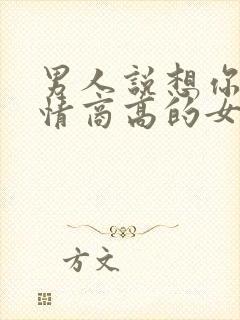 男人说想你
情商高的女
方文